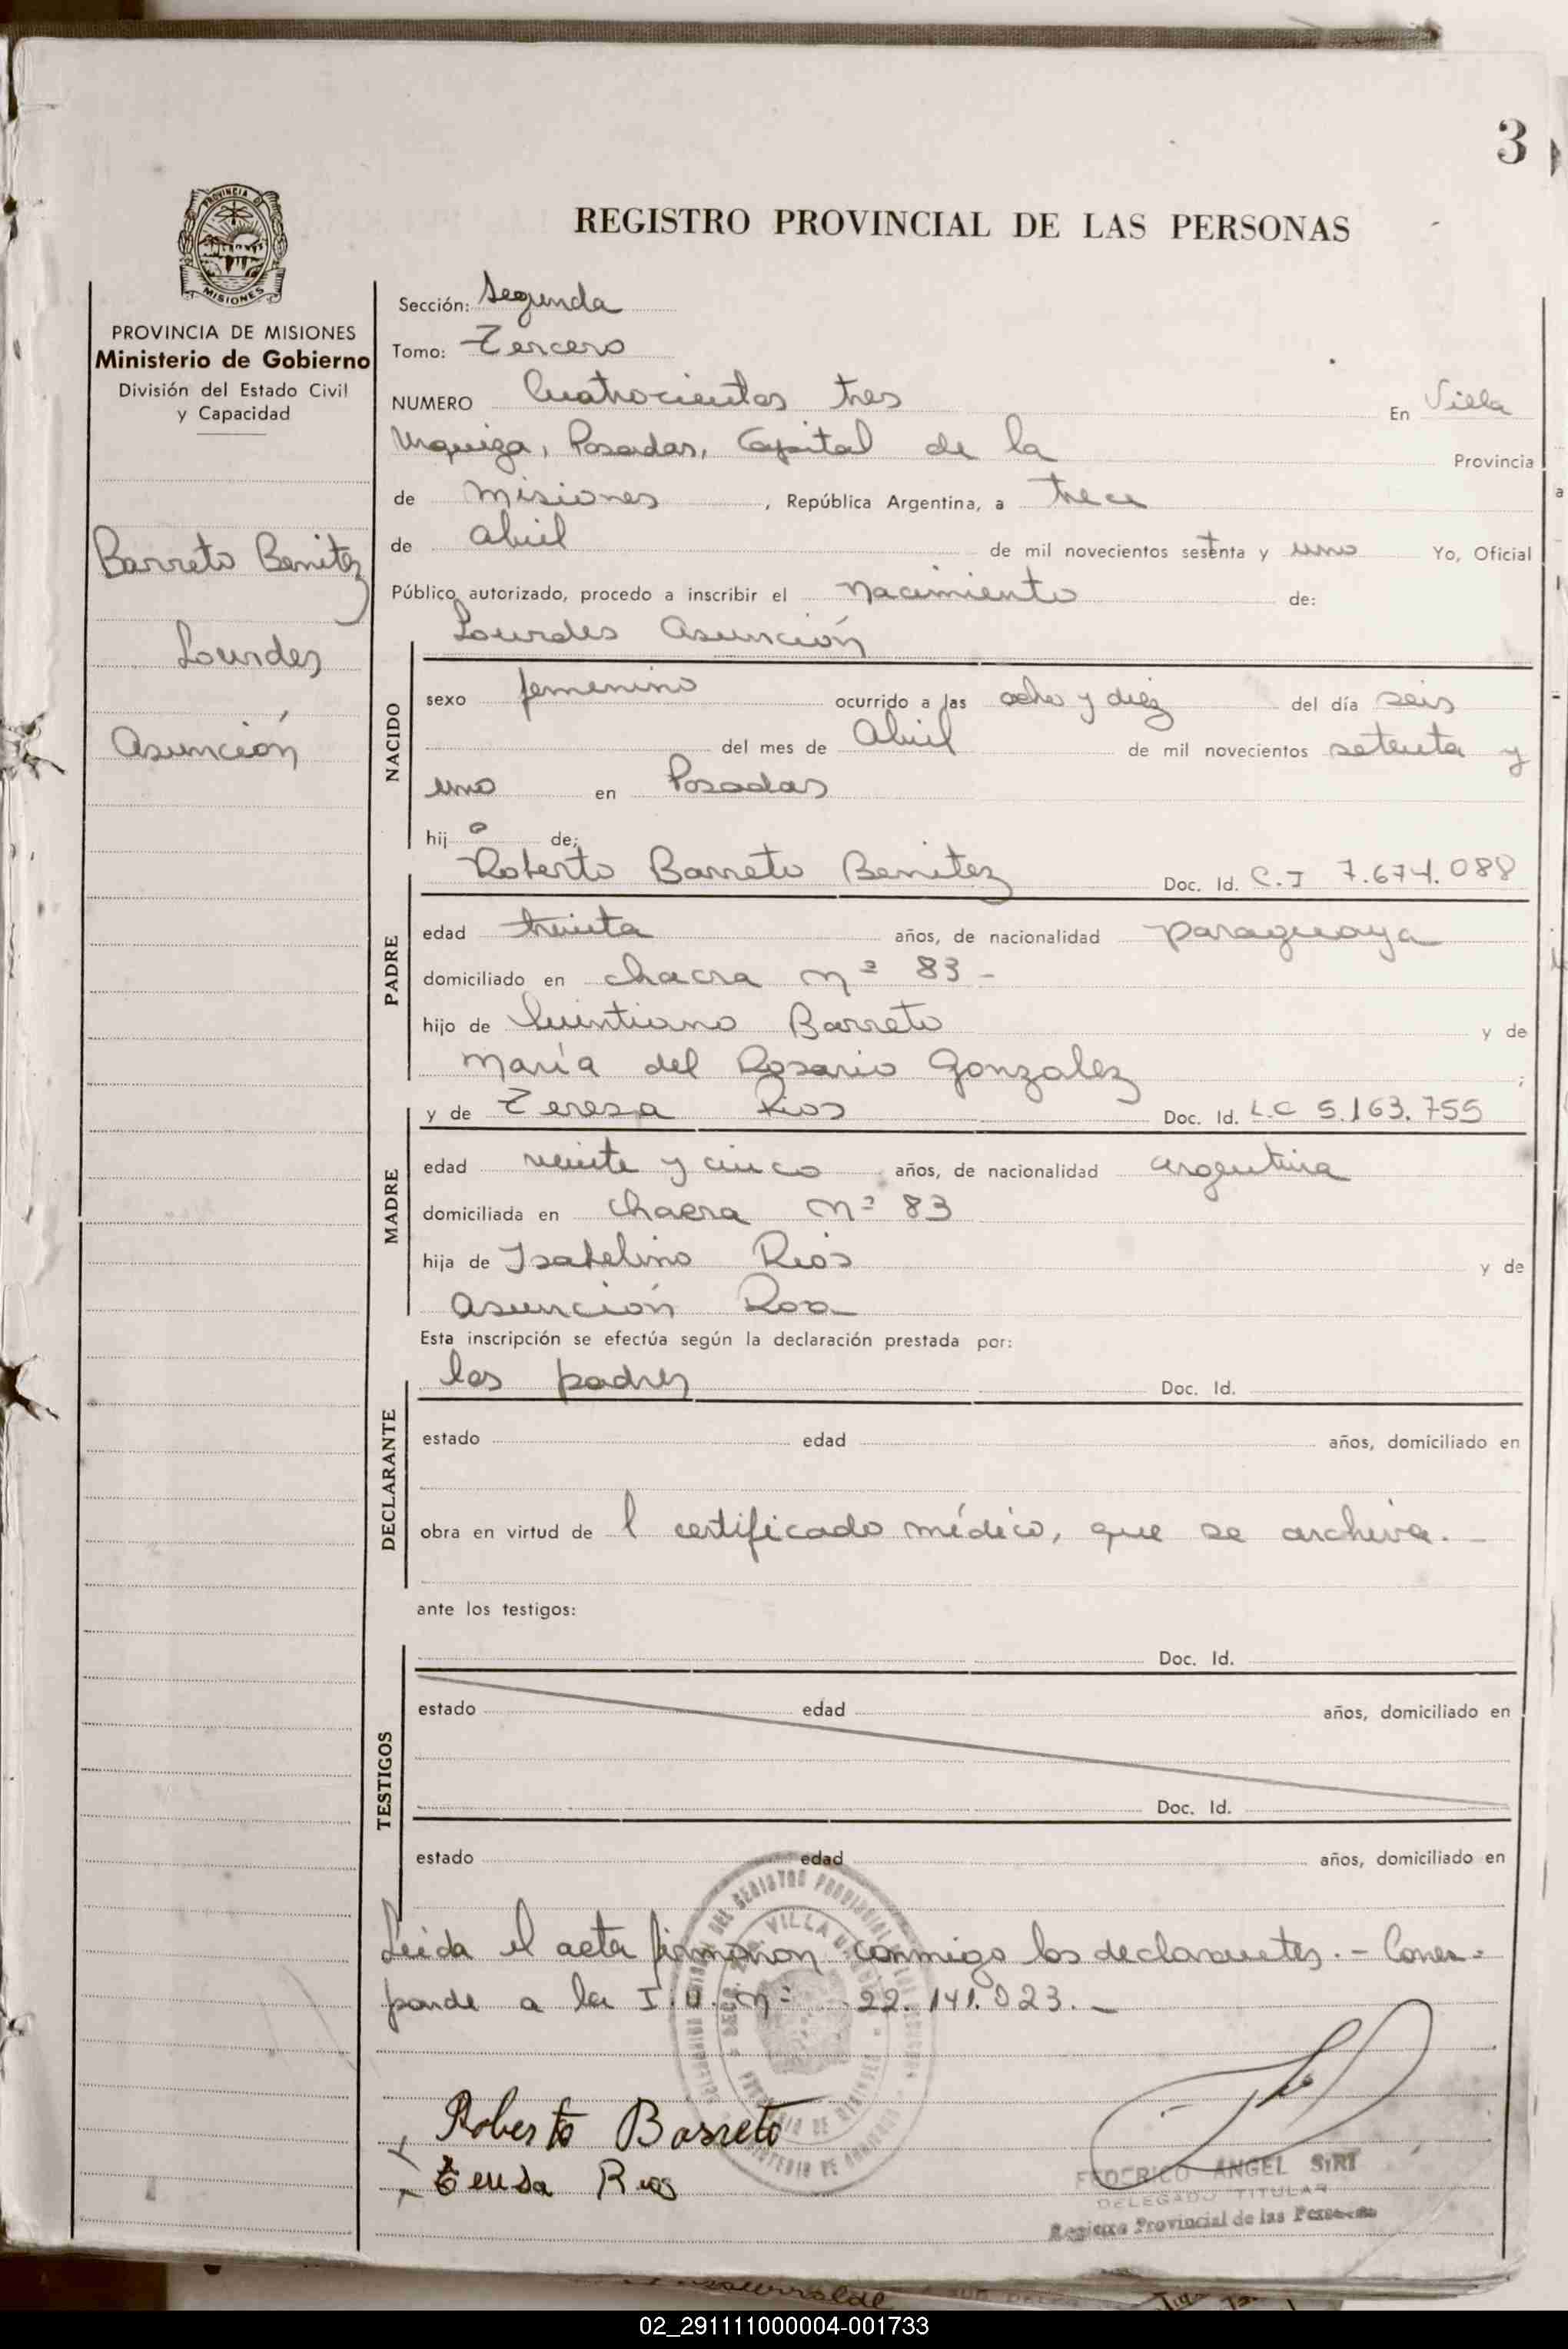 3
REGISTRO PROVINCIAL DE LAS PERSONAS
PROVINCIA DE MISIONES
Ministerio de Gobierno
División del Estado Civil
y Capacidad
Barreto Benitez
Lourdes
Asunción
Sección: Segunda
Tomo: Tercero
NUMERO Cuatrocientos tres En Villa
Urquiza, Posadas, Capital de la Provincia
de Misiones, República Argentina, a trece
de abril de mil novecientos setenta y uno Yo, Oficial
Público autorizado, procedo a inscribir el nacimiento de:
Lourdes Asunción
NACIDO
sexo femenino ocurrido a las ocho y diez del día seis
del mes de Abril de mil novecientos setenta y
uno en Posadas
hij a de:
Roberto Barreto Benitez Doc. Id. C.I 7.674.088
PADRE
edad treinta años, de nacionalidad paraguaya
domiciliado en chacra nº 83 -
hijo de Quintiano Barreto y de
María del Rosario Gonzalez ;
y de Teresa Rios Doc. Id. L.C 5.163.755
MADRE
edad veinte y cinco años, de nacionalidad argentina
domiciliada en chacra nº 83
hija de Isabelino Rios y de
Asunción Roa
Esta inscripción se efectúa según la declaración prestada por:
los padres Doc. Id.
DECLARANTE
estado edad años, domiciliado en
obra en virtud de l certificado médico, que se archiva. -
ante los testigos:
Doc. Id.
TESTIGOS
estado edad años, domiciliado en
Doc. Id.
estado edad años, domiciliado en
Leida el acta firmaron conmigo los declarantes. - Corres-
ponde a la I.U. nº 22.141.023. -
Roberto Barreto
Teresa Rios
FEDERICO ANGEL SIRI
DELEGADO TITULAR
Registro Provincial de las Personas
02_291111000004-001733